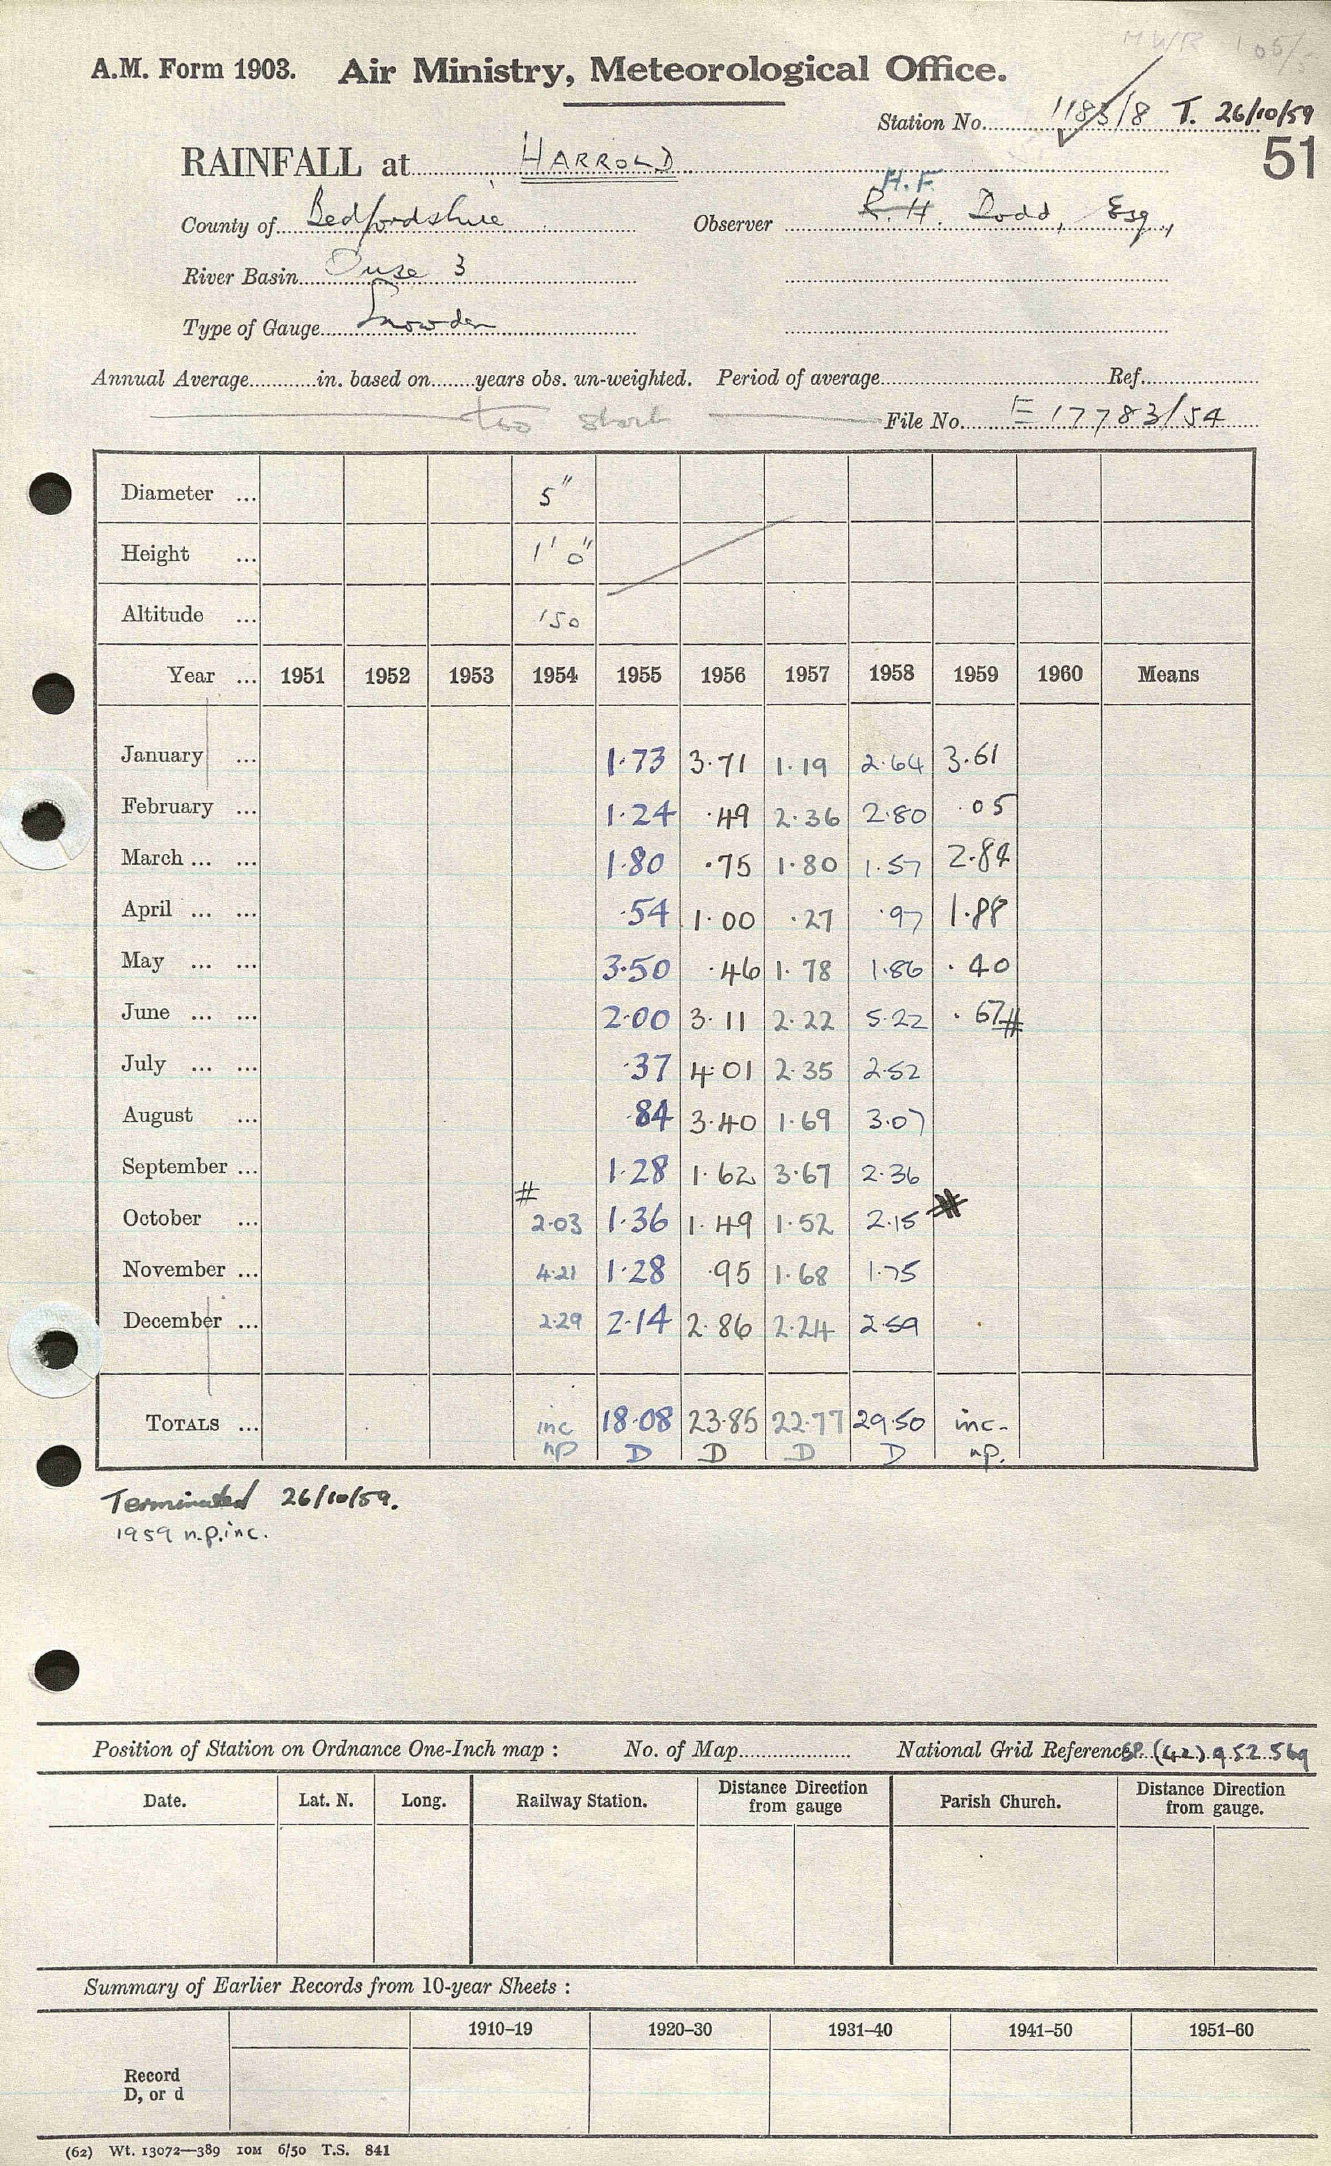 HWR
A.M. Form 1903. Air Ministry, Meteorological Office.
Station No. 1183/8 T. 26/10/59
51
RAINFALL at HARROLD
H.F.
County of Bedfordshire Observer R. H. Dodd, Esq.,
River Basin Ouse 3
Type of Gauge Snowdon
Annual Average in. based on years obs. un-weighted. Period of average Ref.
too short File No. E 17783/54
Diameter ... 5"
Height ... 1' 0"
Altitude ... 150
Year ... 1951 1952 1953 1954 1955 1956 1957 1958 1959 1960 Means
January ... 1.73 3.71 1.19 2.64 3.61
February ... 1.24 .49 2.36 2.80 .05
March ... ... 1.80 .75 1.80 1.57 2.84
April ... ... .54 1.00 .27 .97 1.88
May ... ... 3.50 .46 1.78 1.86 .40
June ... ... 2.00 3.11 2.22 5.22 .67#
July ... ... .37 4.01 2.35 2.52
August ... .84 3.40 1.69 3.07
September ... 1.28 1.62 3.67 2.36
#
October ... 2.03 1.36 1.49 1.52 2.15 #
November ... 4.21 1.28 .95 1.68 1.75
December ... 2.29 2.14 2.86 2.24 2.59
TOTALS ... inc 18.08 23.85 22.77 29.50 inc.
np D D D D np.
Terminated 26/10/59.
1959 n.p.inc.
Position of Station on Ordnance One-Inch map : No. of Map National Grid Reference SP. (42) 952 569
Date. Lat. N. Long. Railway Station. Distance from gauge Direction Parish Church. Distance from gauge. Direction
Summary of Earlier Records from 10-year Sheets :
1910–19 1920–30 1931–40 1941–50 1951–60
Record
D, or d
(62) Wt. 13072—389 10M 6/50 T.S. 841